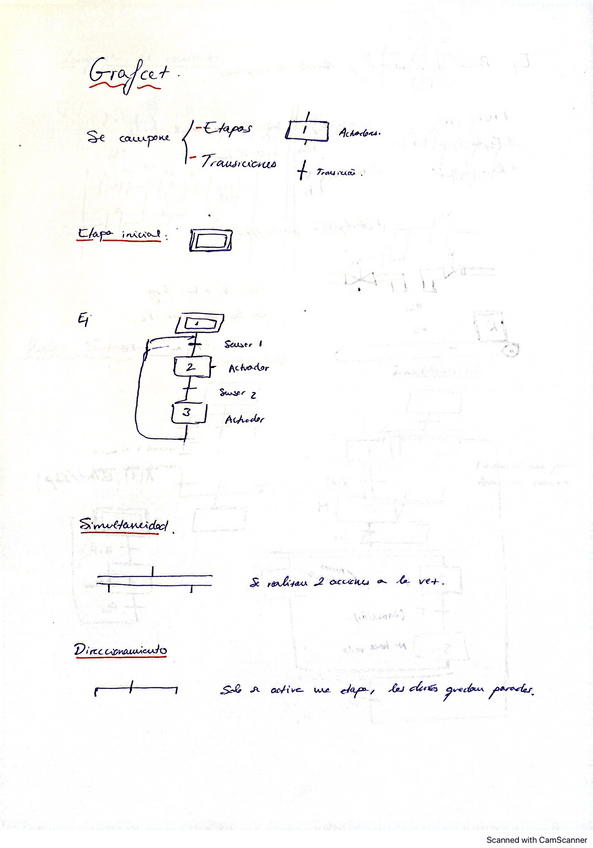 Grafcet.
Se compone
- Etapas
1
Actuadores.
- Transiciones
Transición.
Etapa inicial:
Ej
1
Sensor 1
2
Actuador
Sensor 2
3
Actuador
Simultaneidad.
Se realizan 2 acciones a la vez.
Direccionamiento
Solo se activa una etapa, las demás quedan paradas.
Scanned with CamScanner